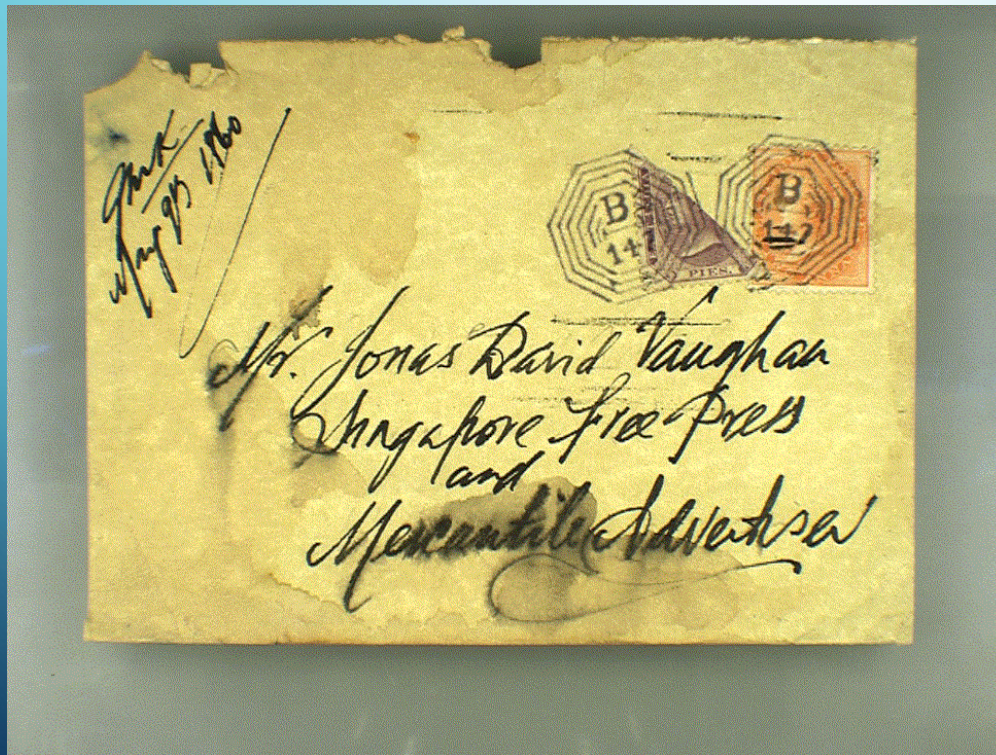 1860
B
147
PIES.
B
147
Mr. Jonas David Vaughan
Singapore Free Press
and
Mercantile Advertiser